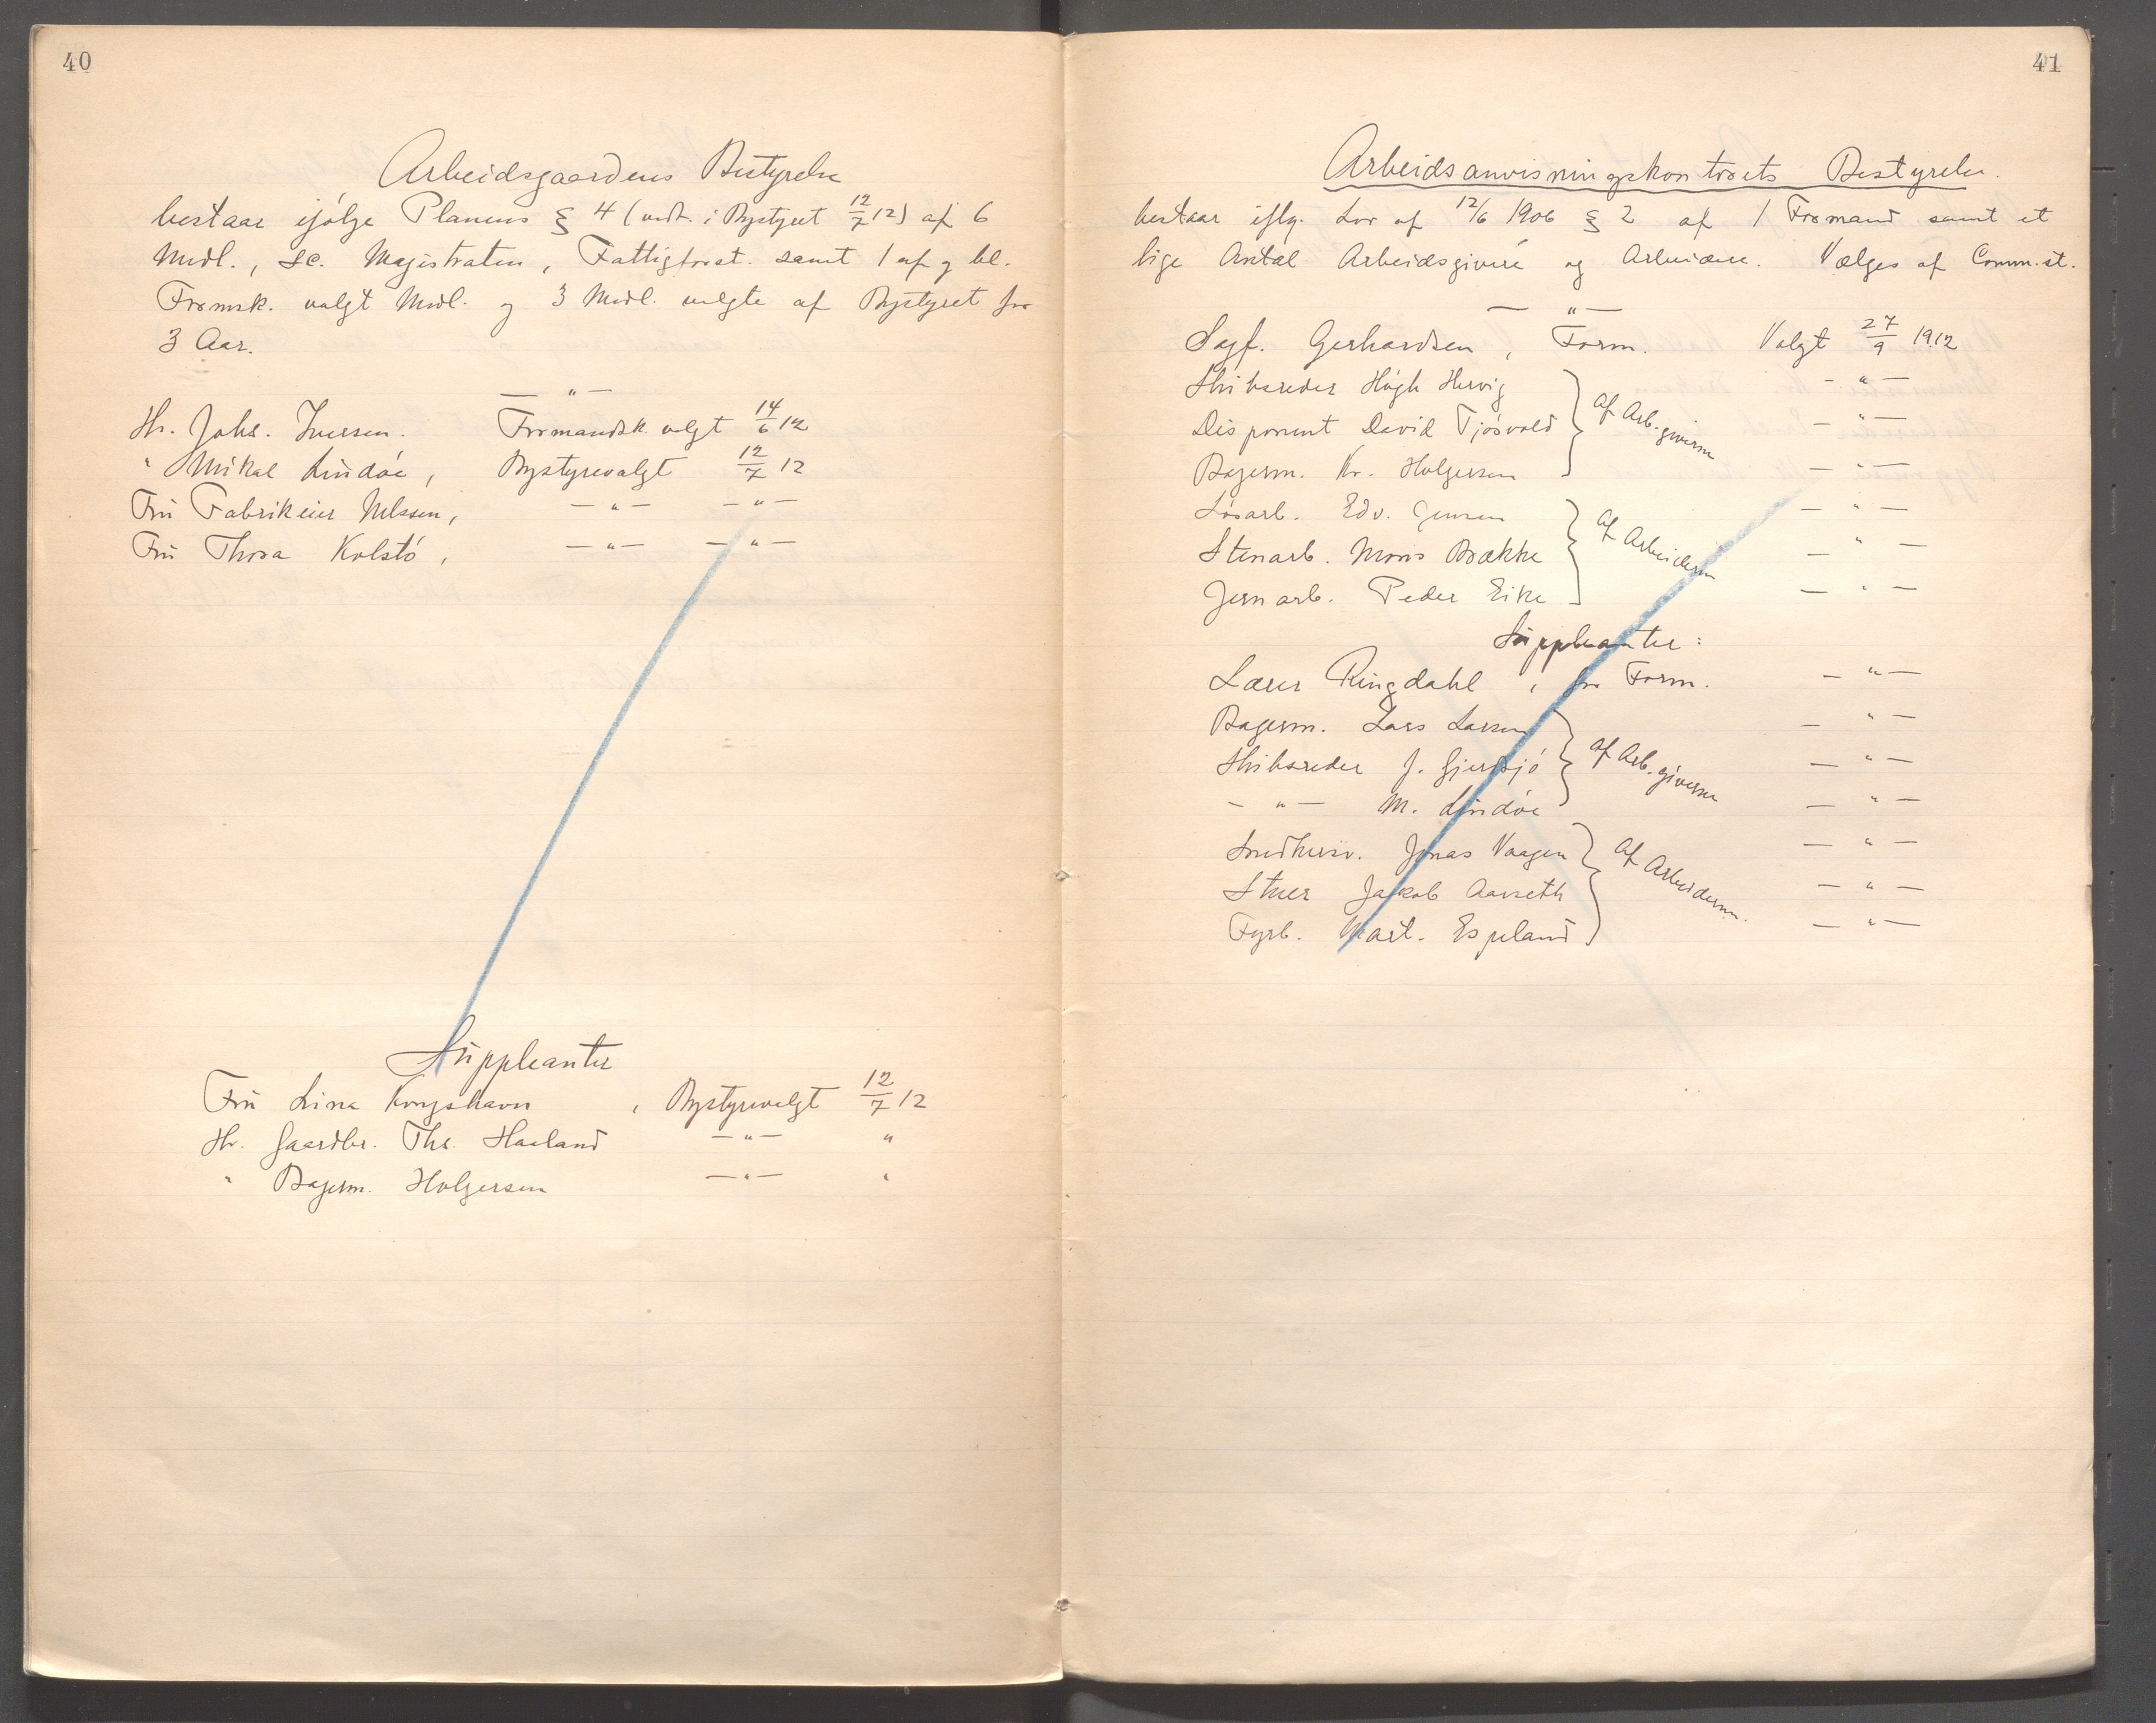 40
Arbeidsgaardens Bestyrelse
bestaar ifølge Planens § 4 (vedt. i Bystyret 12/7 12) af 6
Medl., sc. Magistraten, Fattigforst. samt 1 af og bl.
Formsk. valgt Medl. og 3 Medl. valgte af Bystyret for
3 Aar.
— " —
Hr. Johs. Iversen. Formandsk. valgt 14/6 12
" Mikal Lindøe, Bystyrevalgt 12/7 12
Fru Fabrikeier Nilssen, — " — — " —
Fru Thora Kolstø, — " — — " —
Suppleanter
Fru Lina Kongshavn, Bystyrevalgt 12/7 12
Hr. Gaardbr. Ths. Haaland — " — "
" Bagerm. Holgersen — " — "
41
Arbeidsanvisningskontorets Bestyrelse.
bestaar iflg. Lov af 12/6 1906 § 2 af 1 Formand samt et
lige Antal Arbeidsgivere og Arbeidere. Vælges af Comm.st.
— " —
Sagf. Gerhardsen, Form. Valgt 27/9 1912
Skibsreder Høgh Hervig } af Arb.giverne — " —
Disponent David Tjøsvold — " —
Bagerm. Kr. Holgersen — " —
Løsarb. Edv. Jensen } af Arbeiderne — " —
Stenarb. Mons Brække — " —
Jernarb. Peder Eike — " —
Suppleanter:
Lærer Ringdahl, for Form. — " —
Bagerm. Lars Larsen } af Arb.giverne — " —
Skibsreder J. Gjerdsjø — " —
— " — M. Lindøe — " —
Snedkersv. Jonas Vaagen } af Arbeiderne. — " —
Stuer Jakob Aarseth — " —
Fyrb. Mart. Espeland — " —